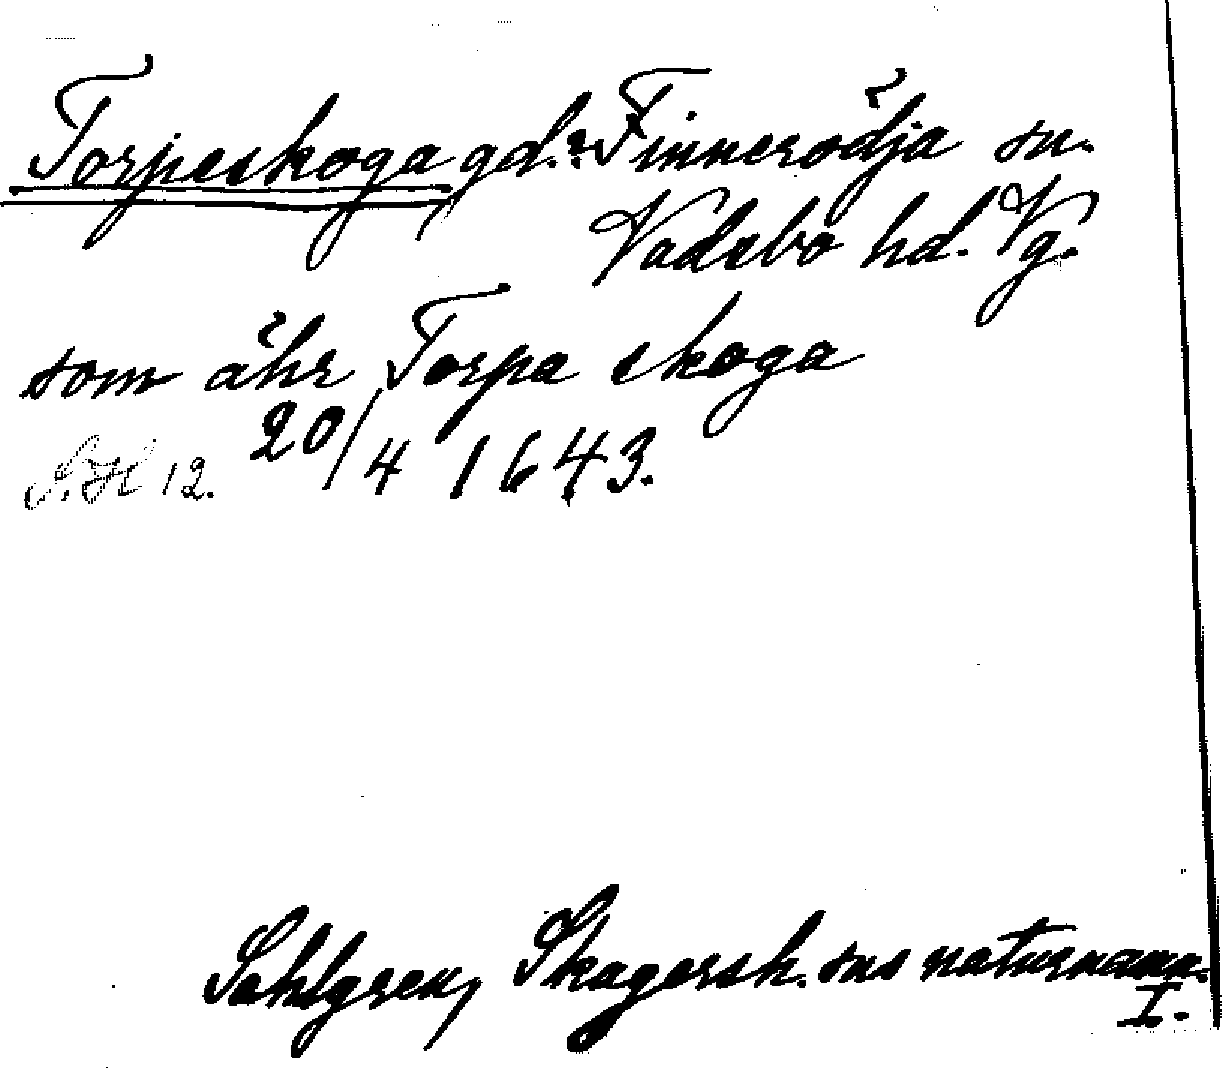 Torpeskoga, gd.: Finnerödja sn.
Vadsbo hd. Vg.
som ähr Torpa skoga
S.H 12. 20/4 1643.
Sahlgren, Skagersh. sns naturnamn.
I.